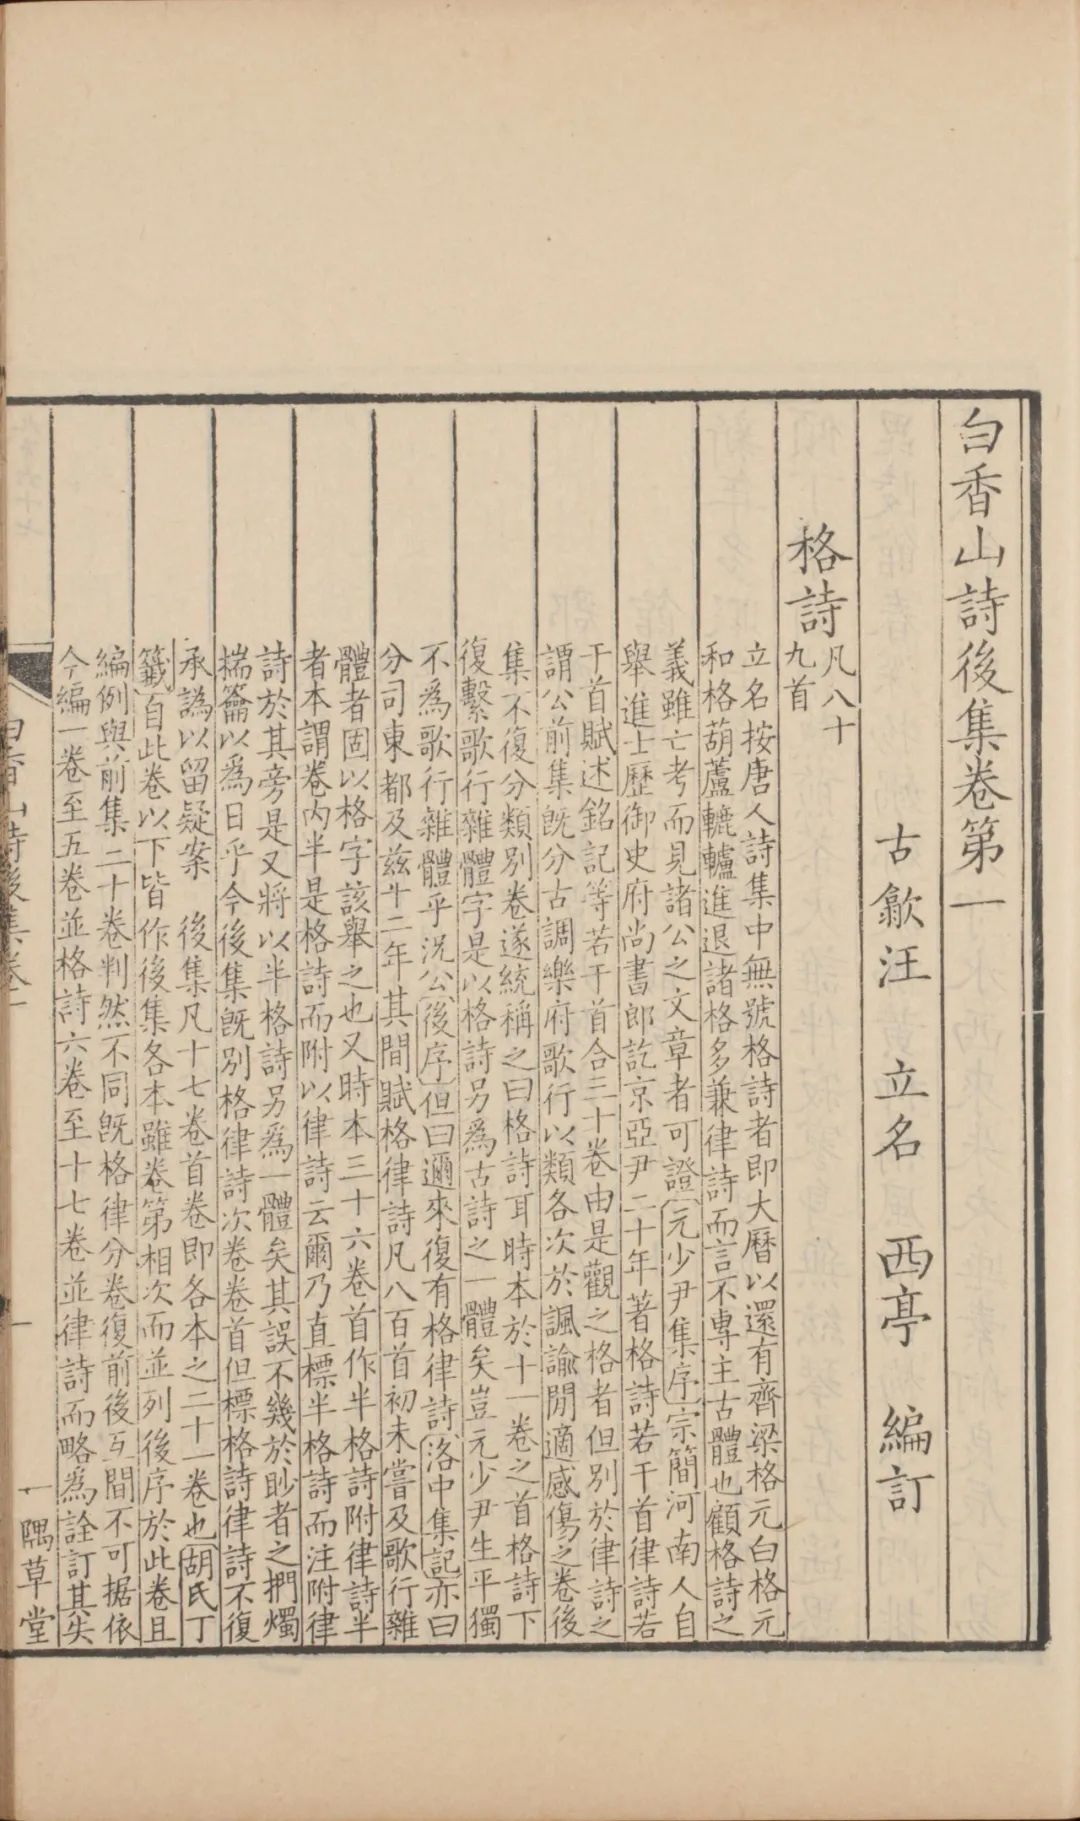 白香山詩後集卷第一
古歙汪 立名 西亭 編訂
格詩凡八十
九首
立名按唐人詩集中無號格詩者即大曆以還有齊梁格元白格元
和格葫蘆轆轤進退諸格多兼律詩而言不專主古體也顧格詩之
義雖亡考而見諸公之文章者可證元少尹集序宗簡河南人自
舉進士歷御史府尚書郎訖京亞尹二十年著格詩若干首律詩若
干首賦述銘記等若干首合三十卷由是觀之格者但別於律詩之
謂公前集既分古調樂府歌行以類各次於諷諭閒適感傷之卷後
集不復分類別卷遂統稱之曰格詩耳時本於十一卷之首格詩下
復繫歌行雜體字是以格詩另爲古詩之一體矣豈元少尹生平獨
不爲歌行雜體乎況公後序但曰邇來復有格律詩洛中集記亦曰
分司東都及茲十二年其間賦格律詩凡八百首初未嘗及歌行雜
體者固以格字該舉之也又時本三十六卷首作半格詩附律詩半
者本謂卷内半是格詩而附以律詩云爾乃直標半格詩而注附律
詩於其旁是又將以半格詩另爲一體矣其誤不幾於眇者之捫燭
揣籥以爲日乎今後集既別格律詩次卷卷首但標格詩律詩不復
承譌以留疑案 後集凡十七卷首卷即各本之二十一卷也胡氏丁
籖自此卷以下皆作後集各本雖卷第相次而並列後序於此卷且
編例與前集二十卷判然不同既格律分卷復前後互間不可据依
今編一卷至五卷並格詩六卷至十七卷並律詩而略爲詮訂其失
白香山詩後集卷一
一
一隅草堂